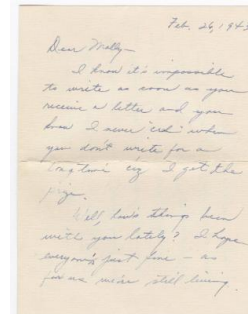 Feb. 26, 194
Dear Molly-
I know it's impossible
to write as soon as you
receive a letter and you
know I never "" when
you don't write for a
long time I get the

Well, how's things been
with you lately? I hope
everyone's just fine - as
for me we're still living.